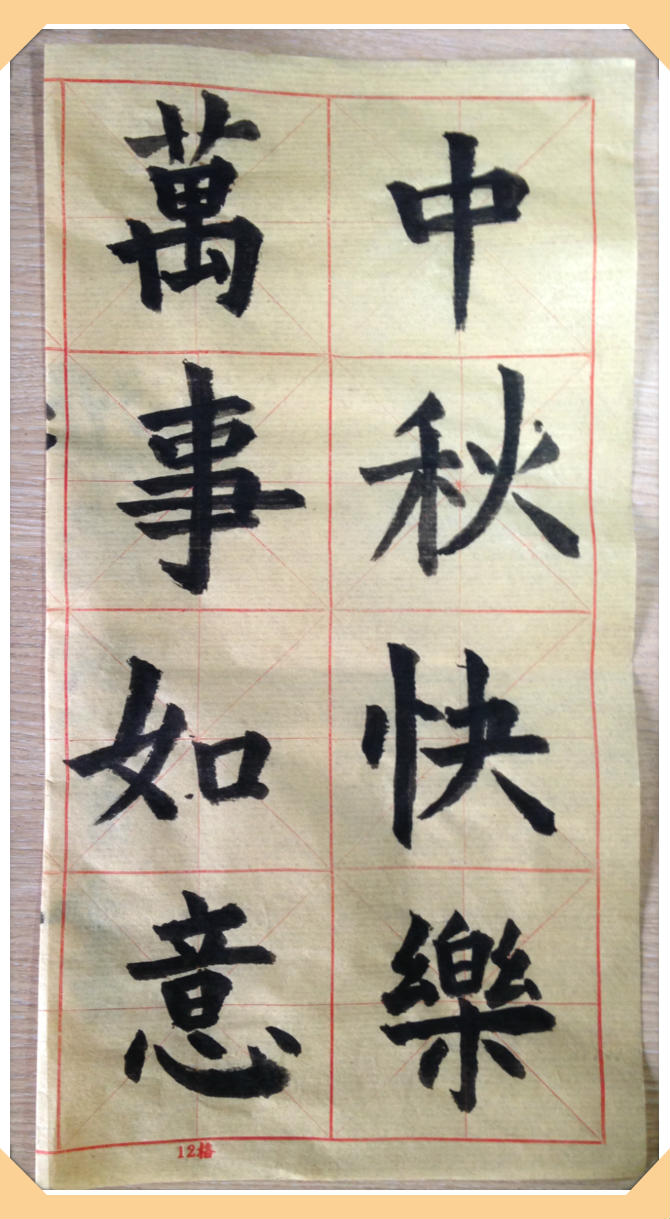 中秋快樂
萬事如意
12格